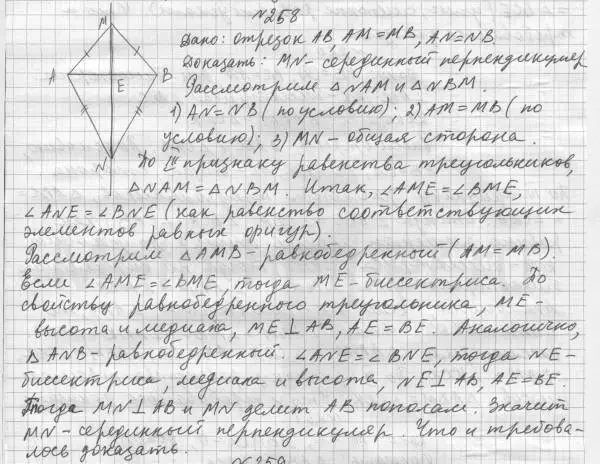 №258
Дано: отрезок AB, AM=MB, AN=NB
Доказать: MN-серединный перпендикуляр
Рассмотрим △NAM и △NBM.
1) AN=NB (по условию); 2) AM=MB (по
условию); 3) MN-общая сторона.
По III признаку равенства треугольников,
△NAM=△NBM. Итак, ∠AME=∠BME,
∠ANE=∠BNE (как равенство соответствующих
элементов равных фигур).
Рассмотрим △AMB-равнобедренный (AM=MB).
Если ∠AME=∠BME, тогда ME-биссектриса. По
свойству равнобедренного треугольника, ME-
высота и медиана, ME⊥AB, AE=BE. Аналогично,
△ANB-равнобедренный. ∠ANE=∠BNE, тогда NE-
биссектриса, медиана и высота, NE⊥AB, AE=BE.
Тогда MN⊥AB и MN делит AB пополам. Значит
MN-серединный перпендикуляр. Что и требова-
лось доказать.
№259
M
A
E
B
N